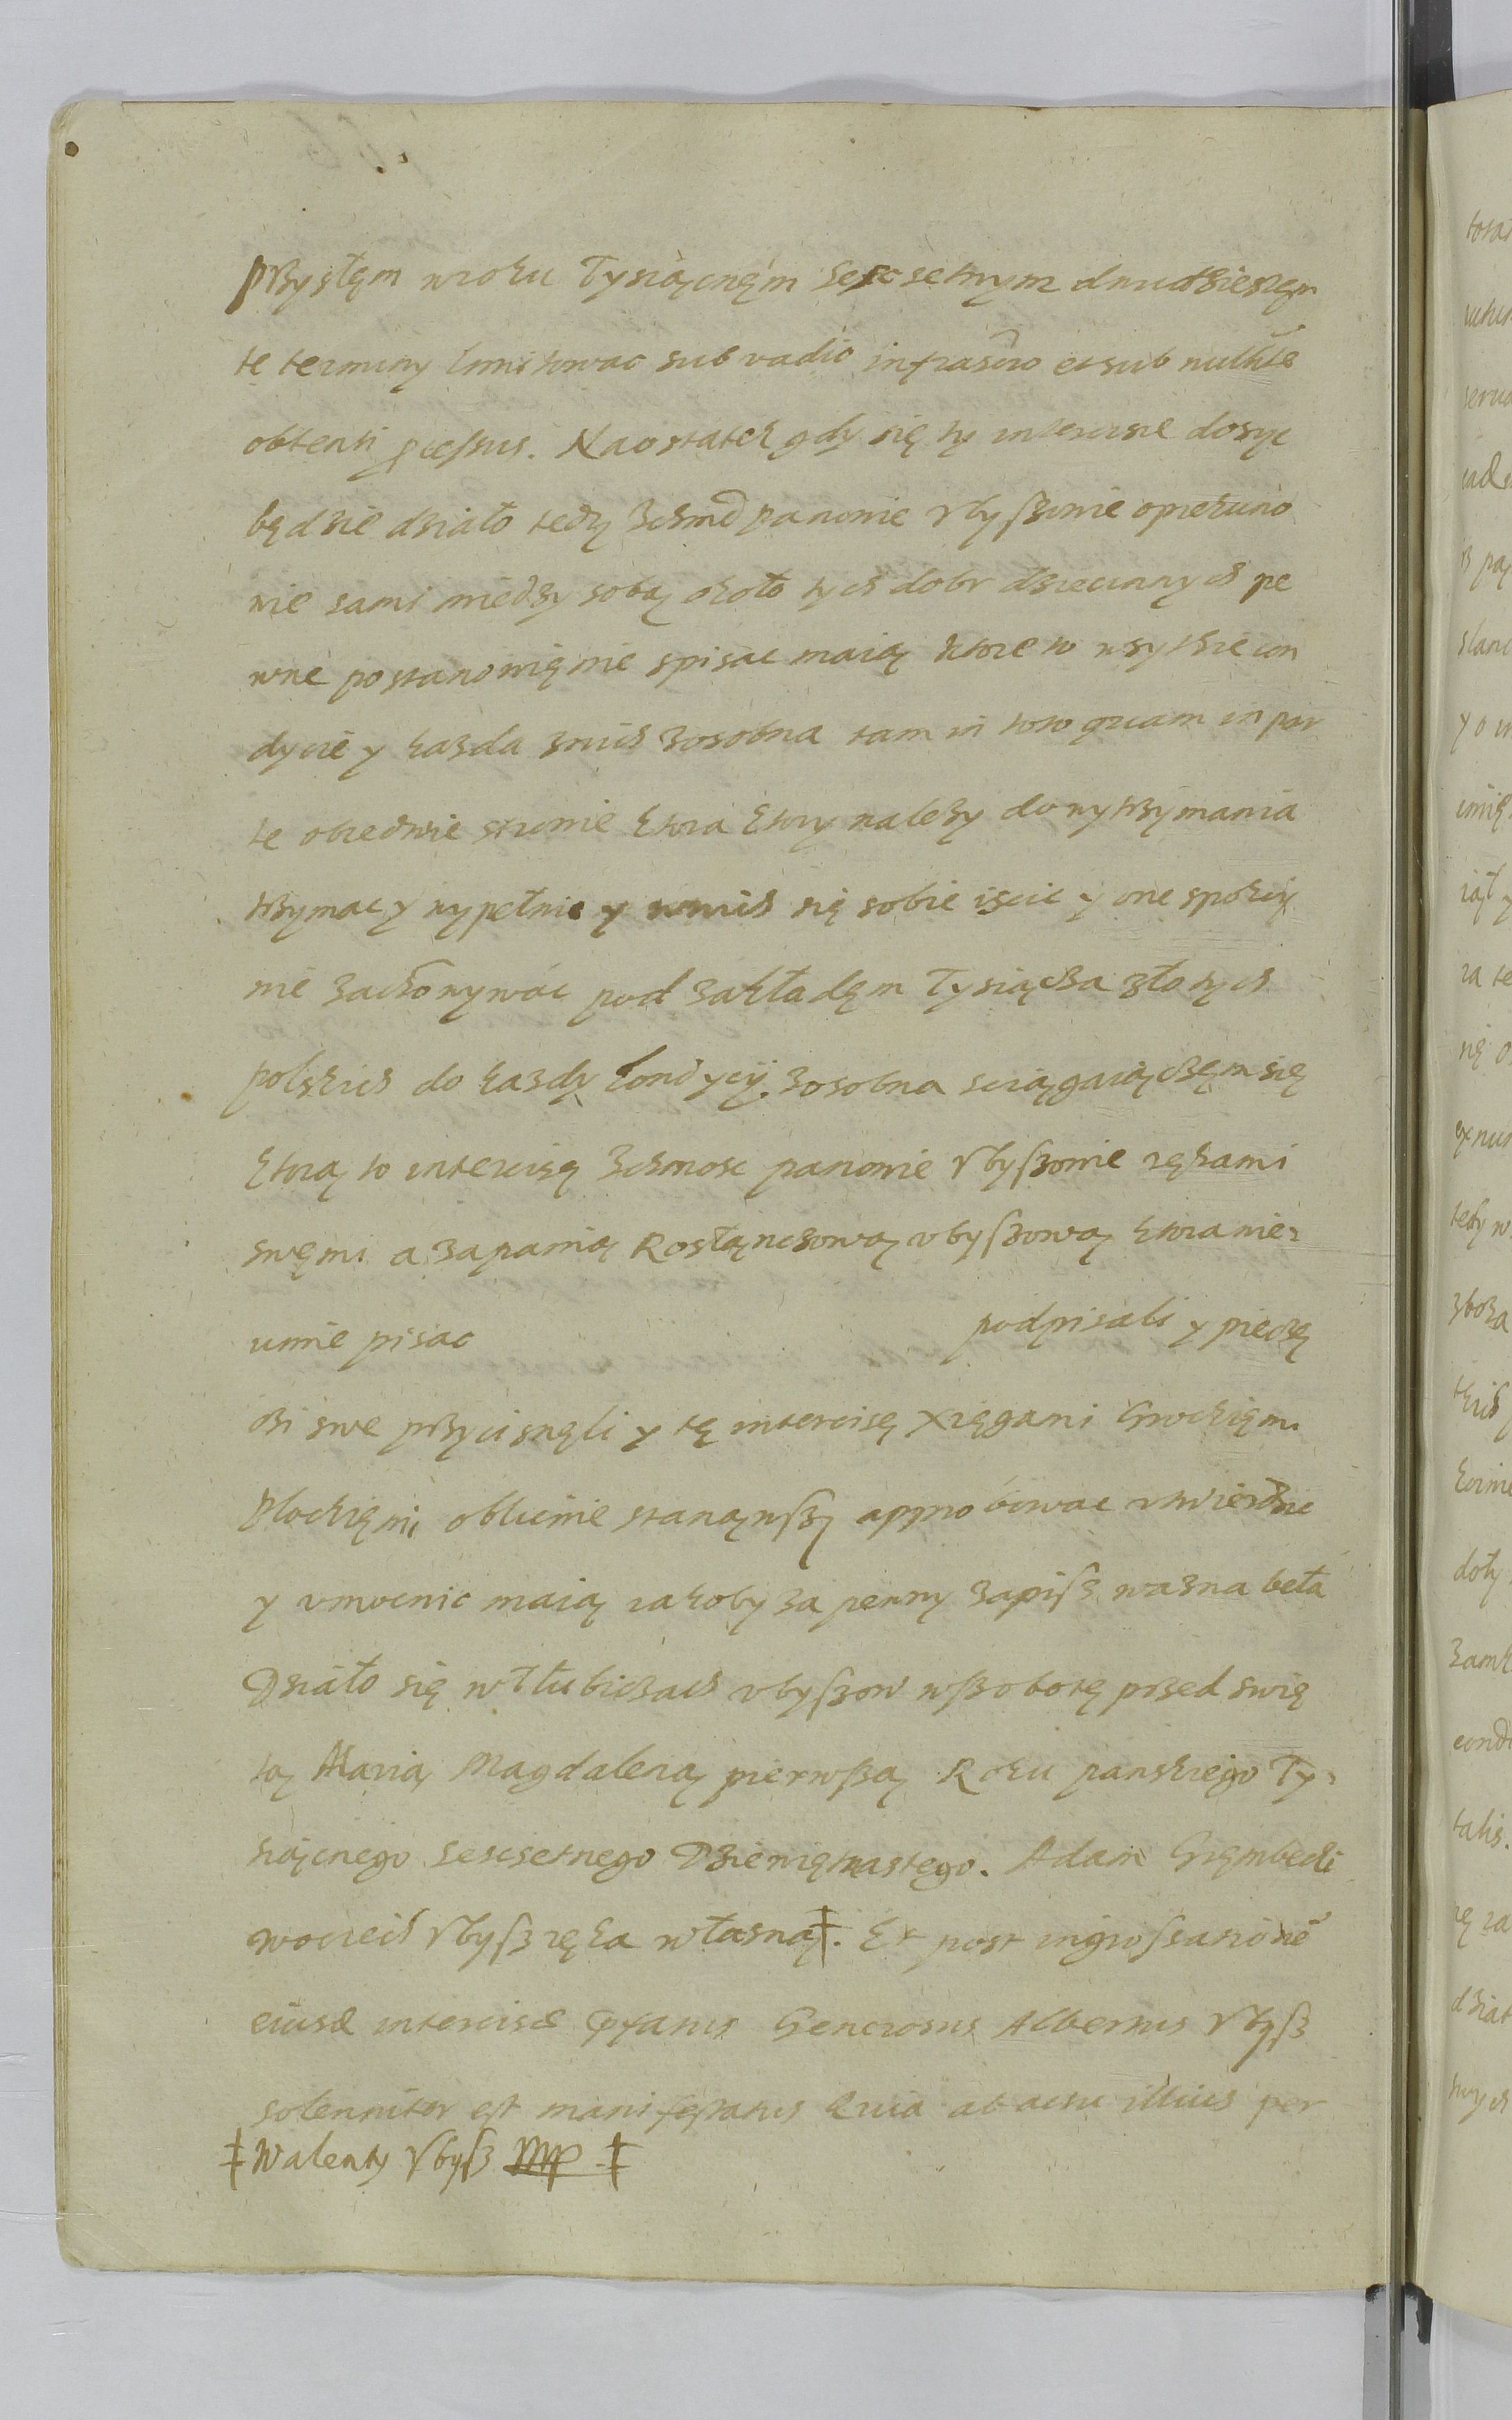 przyszłęm wroku Tysiącnęm Sescsetnym dwudziestęm
te terminy limitowac sub vadio infrascro et sub nullite
obtenti pcessus. Naostatek gdy się ty intercisie dosyc
będzie działo tedy Ichmc panowie Vbyszowie opiekuno
wie sami miedzy sobą około tych dobr dziecinnych pe
wne postanowięnie spisac maią ktore to wszytkie con
dycie y kazda znich zosobna tam in toto quam in par
te obiedwie stronie ktora ktory nalezy do wytrzymania
trzymac y wypełnic y wnich się sobie iscic y one spolny
nie zachowywac pod zakładęm Tysiącza złotych
polskich do kazdy Condycij zosobna sciągaiączęm się
ktorą to intercisę Ichmosc panowie Vbyszowie rękami
swęmi a zapanią Rosłąnczową vbyszową ktora nie
umie pisac podpisali y pieczę
czi swe przycisnęli y tę intercisę Xięgami Grodzkięmi
Plockięmi oblicnie stanąwszy approbowac vtwierdzic
y vmocnic maią iakoby za pewny zapisz wazna beła
Działo się w Tłubiczach vbyszow wszobotę przed swię
tą Marią Magdaleną pierwszą Roku panskiego Ty
siącnego Sescsetnego Dziewiętnastego. Adam Gręmbecki
Wociech Vbysz ręka własną ‡. Et post ingrossationē
eiusd intercisae Pfatus Generosus Albertus Vbysz
solenniter est manifestatus Quia ab actu illius per
‡ Walenty Vbysz mp ‡